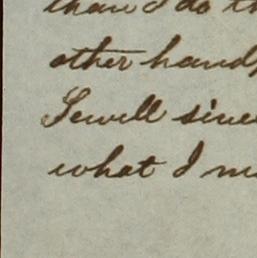 than I do th
other hand,
Sewell since
what I m